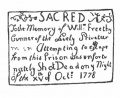 SACRED
To the Memory of Willm Freethy
Gunner of the Lively Privateer
in Attempting to Escape
from this Prison the unfortu
nately Shot Dead on y Night
of the xvd of Octr 1778